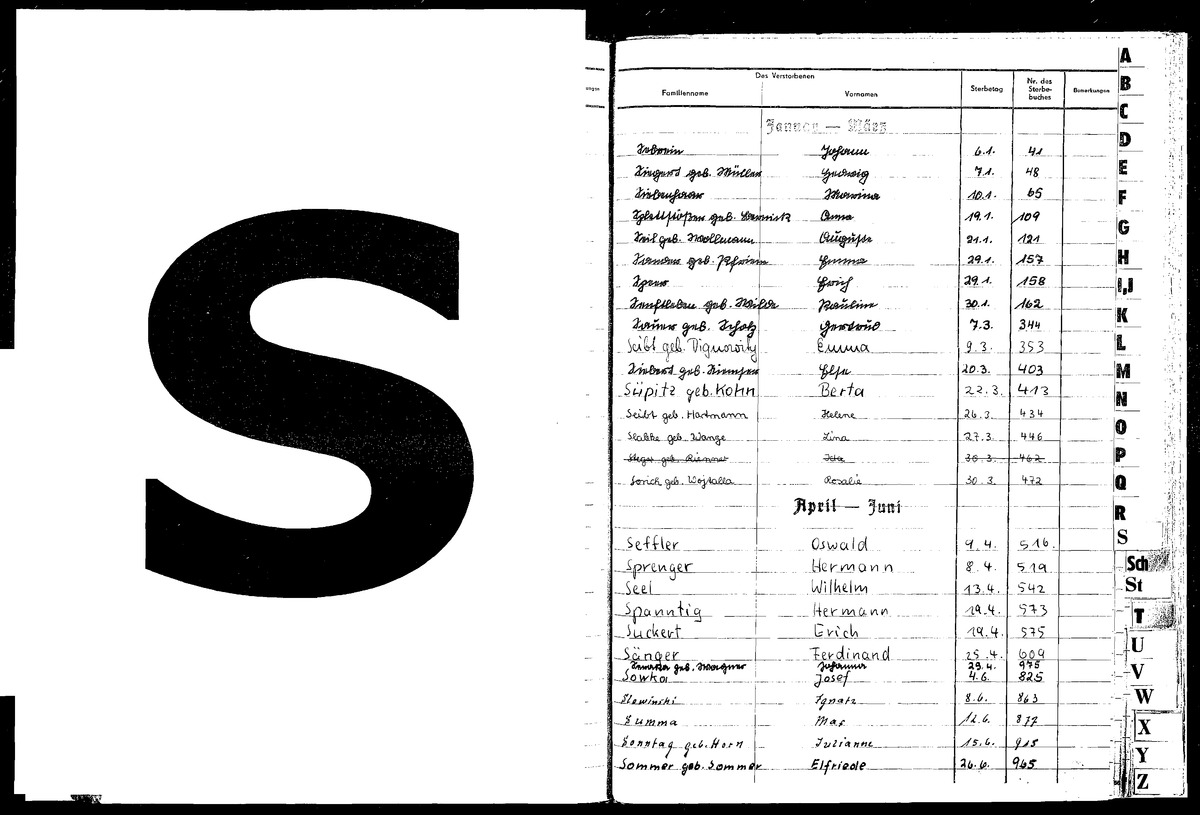 S
Des Verstorbenen
Familienname Vornamen Sterbetag Nr. des Sterbebuches Bemerkungen
Januar — März
Johann 6.1. 41
Siegert geb. Müller Hedwig 7.1. 48
Siebenhaar Marina 10.1. 65
geb. Anna 19.1. 109
Seil geb. Wollmann Auguste 21.1. 121
Sander geb. Pfriem Emma 29.1. 157
Speer Erich 29.1. 158
Senftleben geb. Wilde Pauline 30.1. 162
Sauer geb. Scholz Gertrud 7.3. 344
Seibt geb. Emma 9.3. 353
Siebert geb. Siemsen Else 20.3. 403
Süpitz geb. Kohn Berta 22.3. 413
Seibt geb. Hartmann Helene 26.3. 434
geb. Wange Lina 27.3. 446
geb. Ida 30.3. 462
Sorick geb. Wojtalla Rosalie 30.3. 472
April — Juni
Seffler Oswald 9.4. 516.
Sprenger Hermann 8.4. 519
Seel Wilhelm 13.4. 542
Spanntig Hermann 19.4. 573
Suckert Erich 19.4. 575
Sänger Ferdinand 25.4. 609
geb. Wagner Johanna 29.4. 975
Sowka Josef 4.6. 825
Slewinski Ignatz 8.6. 863
Summa Max 12.6. 877
Sonntag geb. Horn Julianne 15.6. 915
Sommer geb. Sommer Elfriede 26.6. 965
A
B
C
D
E
F
G
H
I,J
K
L
M
N
O
P
Q
R
S
Sch
St
T
U
V
W
X
Y
Z